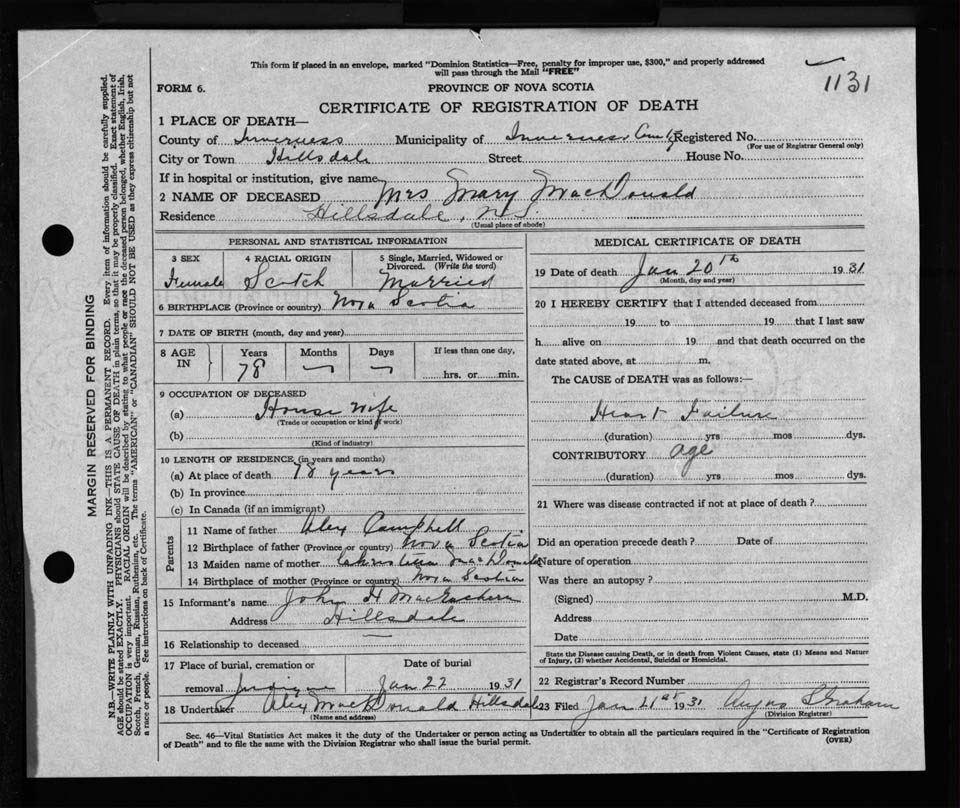 This form if placed in an envelope, marked "Dominion Statistics—Free, penalty for improper use, $300," and properly addressed
will pass through the Mail "FREE"
1131
FORM 6.
PROVINCE OF NOVA SCOTIA
CERTIFICATE OF REGISTRATION OF DEATH
1 PLACE OF DEATH—
County of Inverness Municipality of Inverness Registered No.
(For use of Registrar General only)
City or Town Hillsdale Street House No.
If in hospital or institution, give name
2 NAME OF DECEASED Mrs Mary MacDonald
Residence Hillsdale, N.S.
(Usual place of abode)
PERSONAL AND STATISTICAL INFORMATION
3 SEX 4 RACIAL ORIGIN 5 Single, Married, Widowed or
Divorced. (Write the word)
Female Scotch Married
6 BIRTHPLACE (Province or country) Nova Scotia
7 DATE OF BIRTH (month, day and year)
8 AGE IN Years Months Days If less than one day,
78 hrs. or min.
9 OCCUPATION OF DECEASED
(a) House wife
(Trade or occupation or kind of work)
(b)
(Kind of industry)
10 LENGTH OF RESIDENCE (in years and months)
(a) At place of death 78 years
(b) In province
(c) In Canada (if an immigrant)
Parents
11 Name of father Alex Campbell
12 Birthplace of father (Province or country) Nova Scotia
13 Maiden name of mother MacDonald
14 Birthplace of mother (Province or country) Nova Scotia
15 Informant's name John H MacEachern
Address Hillsdale
16 Relationship to deceased —
17 Place of burial, cremation or Date of burial
removal Judique Jan 22 1931
18 Undertaker Alex MacDonald Hillsdale
(Name and address)
MEDICAL CERTIFICATE OF DEATH
19 Date of death Jan 20th 1931
(Month, day and year)
20 I HEREBY CERTIFY that I attended deceased from
19 to 19 that I last saw
h alive on 19 and that death occurred on the
date stated above, at m.
The CAUSE of DEATH was as follows:—
Heart Failure
(duration) yrs mos dys.
CONTRIBUTORY age
(duration) yrs. mos. dys.
21 Where was disease contracted if not at place of death?
Did an operation precede death? Date of
Nature of operation
Was there an autopsy?
(Signed) M.D.
Address
Date
State the Disease causing Death, or in death from Violent Causes, state (1) Means and Nature
of Injury, (2) whether Accidental, Suicidal or Homicidal.
22 Registrar's Record Number
23 Filed Jan 21st 1931 Angus L Graham
(Division Registrar)
Sec. 46—Vital Statistics Act makes it the duty of the Undertaker or person acting as Undertaker to obtain all the particulars required in the "Certificate of Registration
of Death" and to file the same with the Division Registrar who shall issue the burial permit.
(OVER)
MARGIN RESERVED FOR BINDING
N.B.—WRITE PLAINLY WITH UNFADING INK—THIS IS A PERMANENT RECORD. Every item of information should be carefully supplied.
AGE should be stated EXACTLY. PHYSICIANS should STATE CAUSE OF DEATH in plain terms, so that it may be properly classified. Exact statement of
OCCUPATION is very important. RACIAL ORIGIN will be described by stating to what people or race the deceased person belonged, whether English, Irish,
Scotch, French, German, Russian, Ruthenian, etc. The terms "AMERICAN" or "CANADIAN" SHOULD NOT BE USED as they express citizenship but not
a race or people. See instructions on back of Certificate.